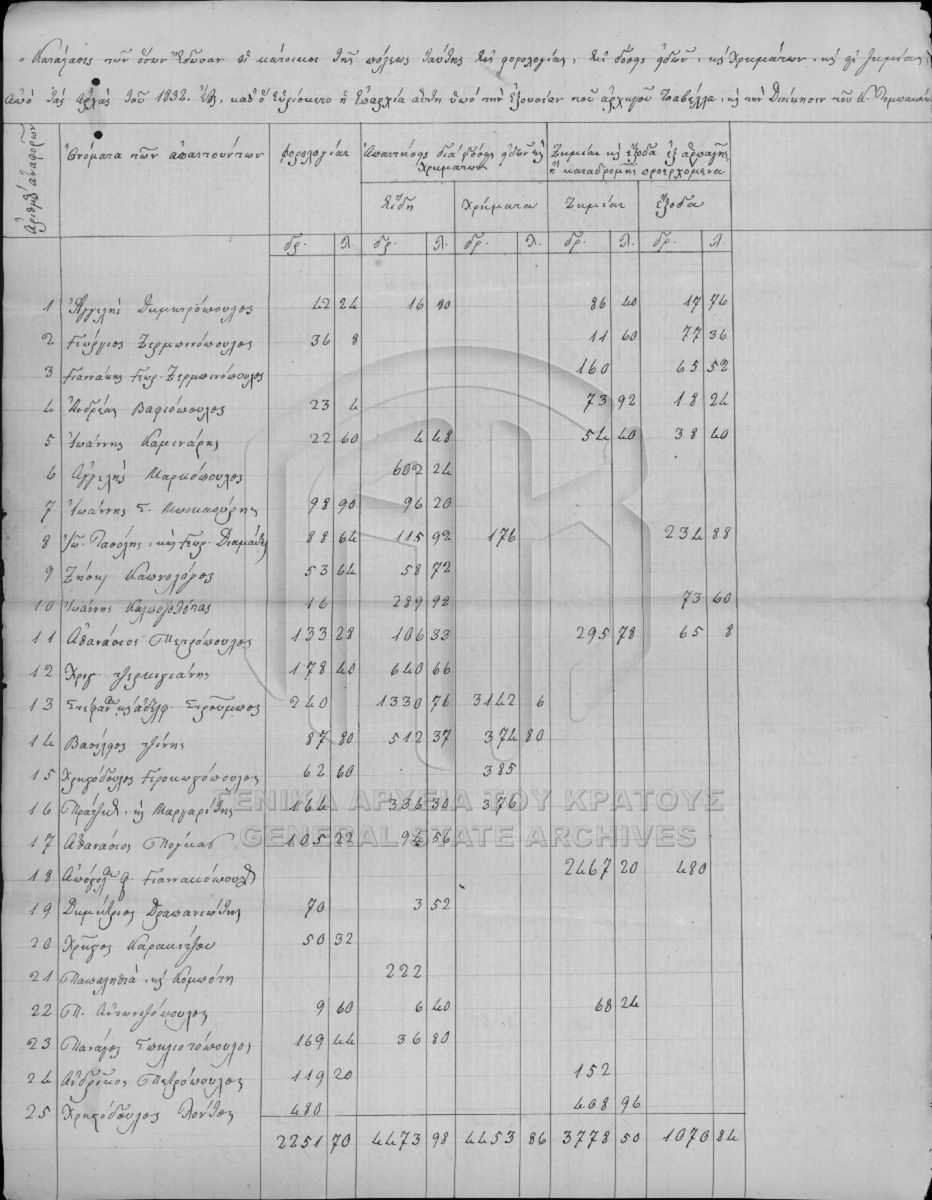 Κατάστασις τῶν ὅσων ἔδωσαν οἱ κάτοικοι τῆς πόλεως ταύτης εἰς φορολογίας, εἰς εἰδῶν, κ χρημάτων, κ ζημίας
Ἀπὸ τὰς ἀρχὰς τοῦ 1832. καθ' ὃ εὑρίσκετο ἡ ἐπαρχία αὕτη ὑπὸ τὴν ἐξουσίαν τοῦ ἀρχηγοῦ Τσαβέλλα, κ τὴν διοίκησιν τοῦ Κ.
Ἀριθμὸς ἀναφορῶν
Ὀνόματα τῶν ἀπαιτούντων
φορολογίαι
Ἀπαιτήσεις διὰ εἰδῶν κ χρημάτων
Ζημίαι κ ἔξοδα ἐξ ἁρπαγῆς ἢ καταδρομῆς προερχόμενα
Εἴδη Χρήματα Ζημίαι Ἔξοδα
δρ. λ. δρ. λ. δρ. λ. δρ. λ. δρ. λ.
1 Ἀγγελὴς Δημητρόπουλος 42 24 16 80 86 40 17 76
2 Γεώργιος Ζερμπινόπουλος 36 8 11 60 77 36
3 Γιαννάκης Γεωρ. Ζερμπινόπουλος 160 65 52
4 Ἀνδρέας Βαφιόπουλος 23 4 73 92 18 24
5 Ἰωάννης Καμινάρης 22 60 4 48 54 40 38 40
6 Ἀγγελὴς Μαρκόπουλος 602 24
7 Ἰωάννης Σ. 98 90 96 20
8 Ἰω. κ Γεωρ. 88 64 115 92 176 234 88
9 Καπνολόγος 53 64 58 72
10 Ἰωάννης 16 289 92 73 60
11 Ἀθανάσιος Πετρόπουλος 133 28 106 33 295 78 65 8
12 178 40 640 66
13 κ ἀδελφ. Στρούμπος 240 1330 76 3142 6
14 Βασίλειος 87 80 512 37 374 80
15 Χριστόδουλος 62 60 385
16 κ Μαργαρίτης 164 336 30 376
17 Ἀθανάσιος 105 22 94 56
18 2467 20 480
19 Δημήτριος Δραπανιώτης 70 3 52
20 Χρῆστος Καρακίτζου 50 32
21 κ Κομπότη 222
22 Π. 9 60 6 40 68 24
23 Πανάγος 169 44 36 80
24 Ἀνδρίκος Πετρόπουλος 119 20 152
25 Χριστόδουλος 480 408 96
2251 70 4473 98 4453 86 3778 50 1070 84
ΓΕΝΙΚΑ ΑΡΧΕΙΑ ΤΟΥ ΚΡΑΤΟΥΣ
GENERAL STATE ARCHIVES